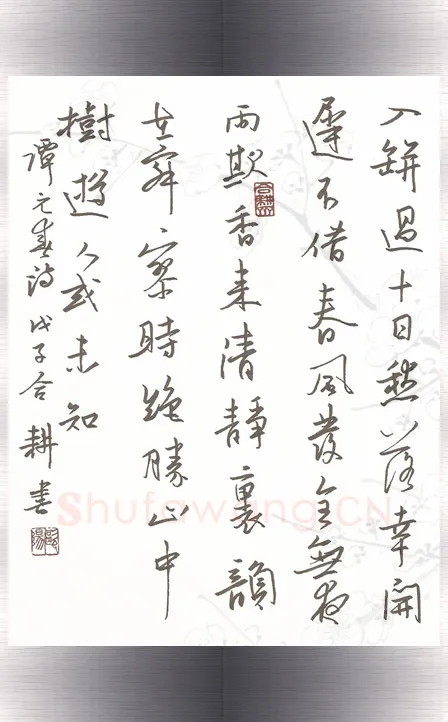 入缾過十日愁落幸開
遲不借春風發全無夜
雨欺香来清靜裏韻
在寂寥時絕勝山中
樹遊人或未知
譚元春詩戊子合耕書
Shufawang.CN